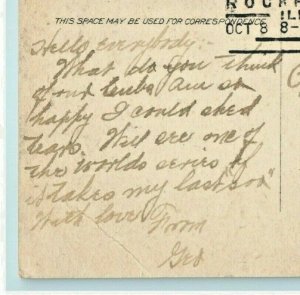 ROCKF
ILL
OCT 8 8-
THIS SPACE MAY BE USED FOR CORRESPONDENCE
Hello everybody:-
What do you think
of our Cubs Am so
happy I could shed
tears. Will see one of
the worlds series if
it takes my last "sou"
With love from
Geo